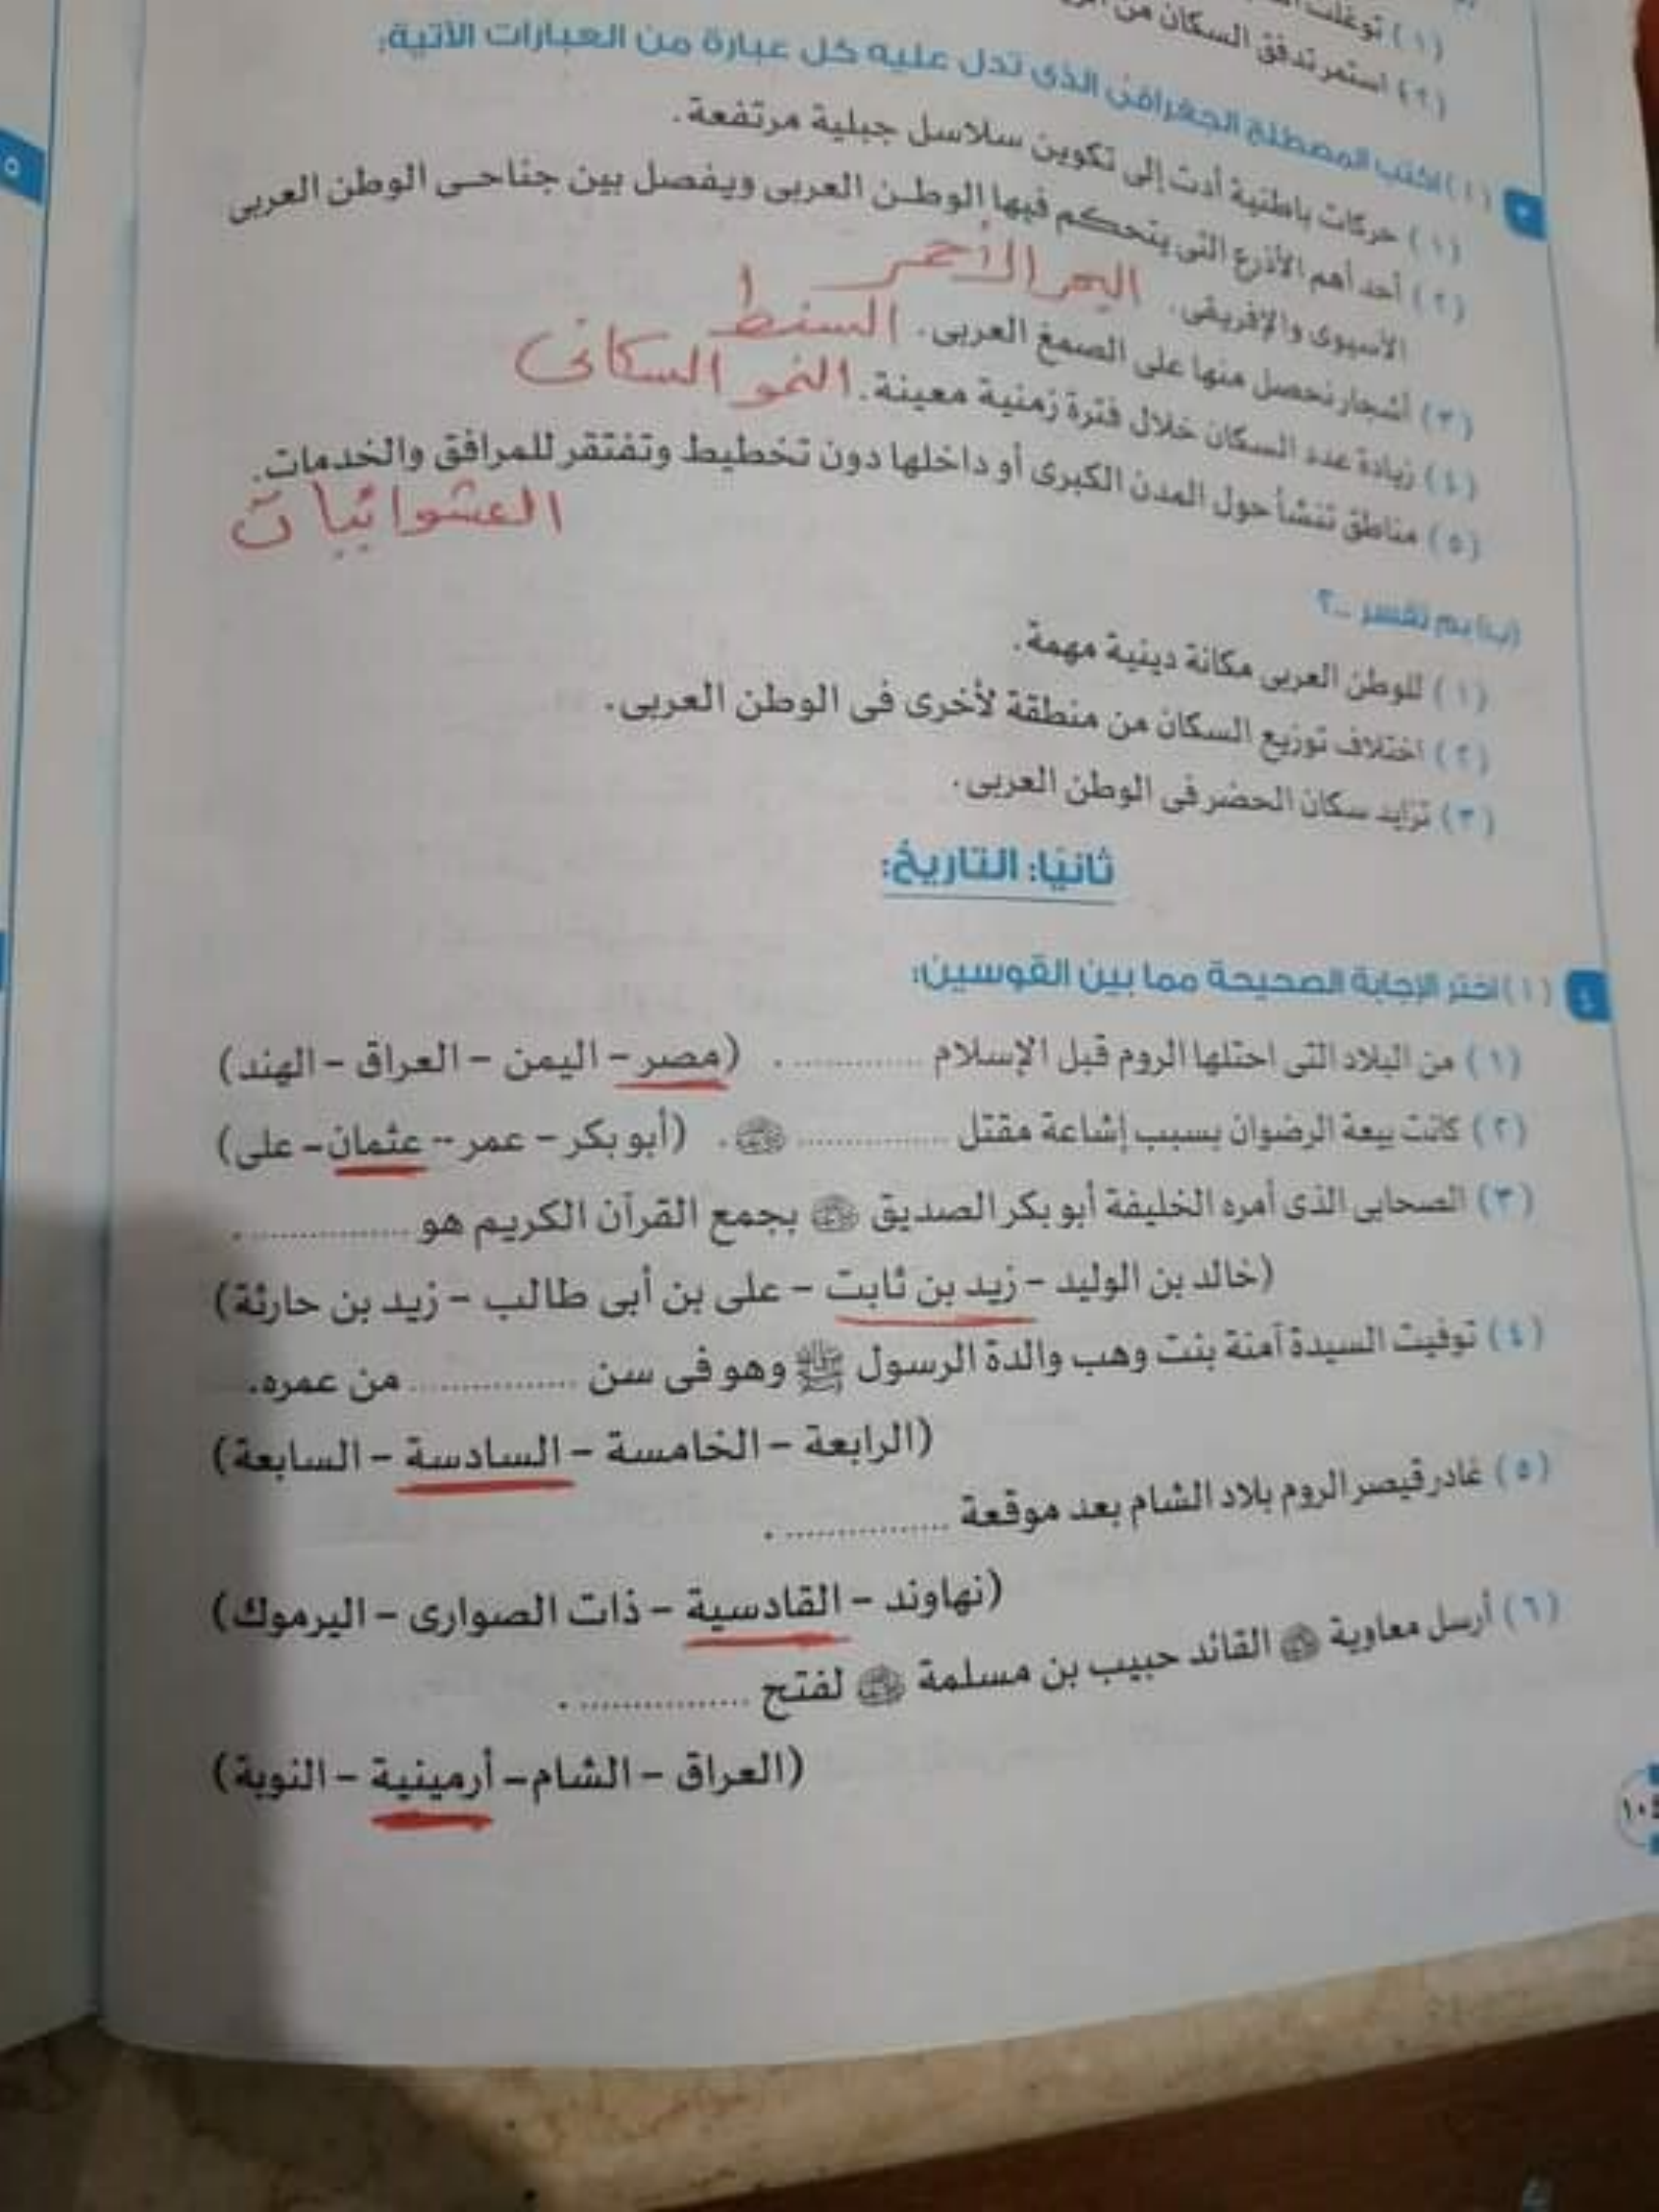 (١) توغلت
(٢) استمر تدفق السكان من
٣ (١) اكتب المصطلح الجغرافى الذى تدل عليه كل عبارة من العبارات الآتية:
(١) حركات باطنية أدت إلى تكوين سلاسل جبلية مرتفعة.
(٢) أحد أهم الأذرع التى يتحكم فيها الوطن العربى ويفصل بين جناحى الوطن العربى
الأسيوى والإفريقى. البحر الأحمر
(٣) أشجار نحصل منها على الصمغ العربى. السنط
(٤) زيادة عدد السكان خلال فترة زمنية معينة. النمو السكانى
(٥) مناطق تنشأ حول المدن الكبرى أو داخلها دون تخطيط وتفتقر للمرافق والخدمات.
العشوائيات
(ب) بم تفسر ..؟
(١) للوطن العربى مكانة دينية مهمة.
(٢) اختلاف توزيع السكان من منطقة لأخرى فى الوطن العربى.
(٣) تزايد سكان الحضر فى الوطن العربى.
ثانيًا: التاريخ:
٤ (١) اختر الإجابة الصحيحة مما بين القوسين:
(١) من البلاد التى احتلها الروم قبل الإسلام ............... . (مصر – اليمن – العراق – الهند)
(٢) كانت بيعة الرضوان بسبب إشاعة مقتل ............... . (أبو بكر – عمر -- عثمان – على)
(٣) الصحابى الذى أمره الخليفة أبو بكر الصديق بجمع القرآن الكريم هو ............... .
(خالد بن الوليد – زيد بن ثابت – على بن أبى طالب – زيد بن حارثة)
(٤) توفيت السيدة آمنة بنت وهب والدة الرسول ﷺ وهو فى سن ............... من عمره.
(الرابعة – الخامسة – السادسة – السابعة)
(٥) غادر قيصر الروم بلاد الشام بعد موقعة ............... .
(نهاوند – القادسية – ذات الصوارى – اليرموك)
(٦) أرسل معاوية القائد حبيب بن مسلمة لفتح ............... .
(العراق – الشام – أرمينية – النوبة)